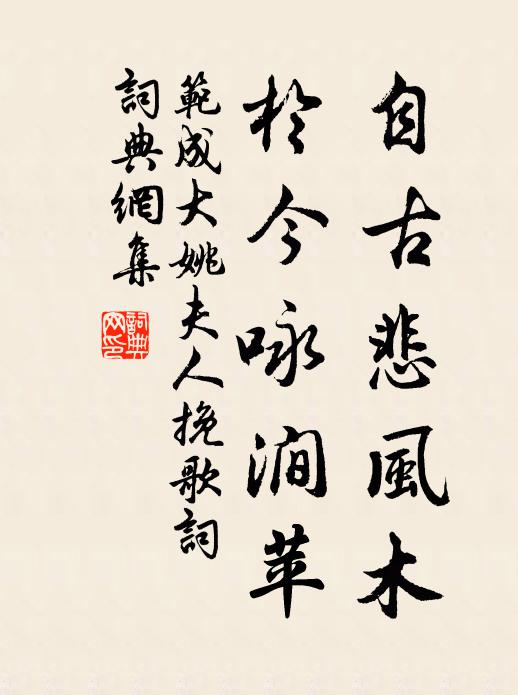 自古悲風木
於今咏澗苹
範成大姚夫人挽歌詞
詞典網集
詞典網印